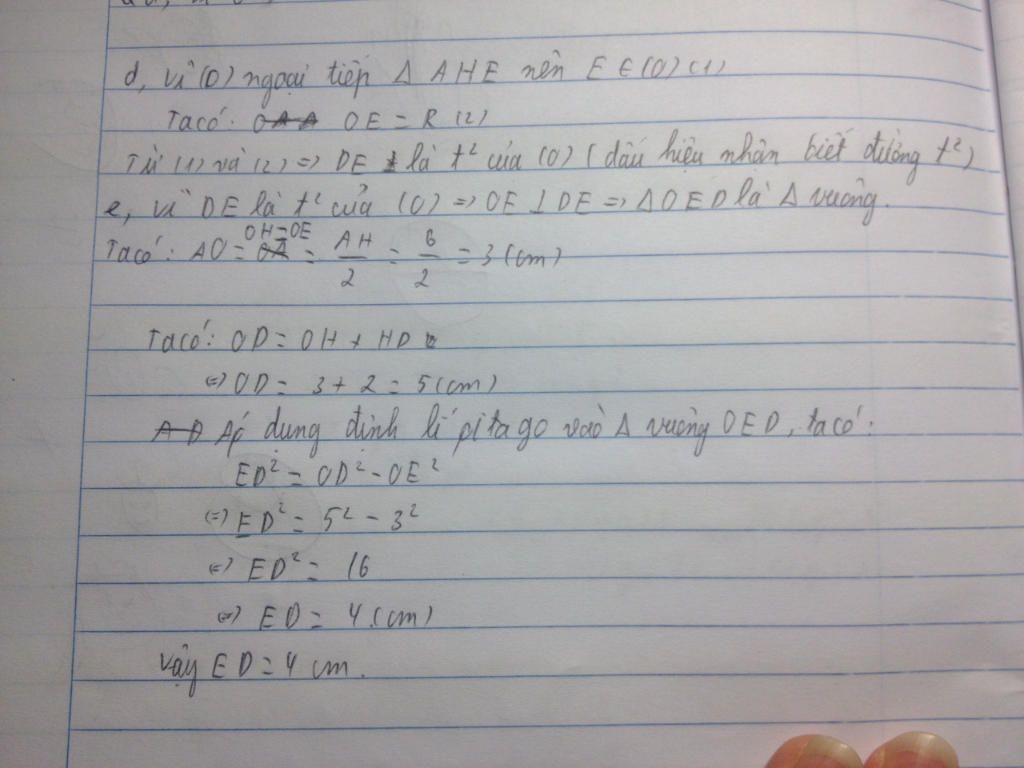 d, vì (O) ngoại tiếp Δ AHE nên E ∈ (O) (1)
Ta có: OE = R (2)
Từ (1) và (2) => DE là t² của (O) (dấu hiệu nhận biết đường t²)
e, vì DE là t² của (O) => OE ⊥ DE => Δ OED là Δ vuông.
OH=OE
Ta có: AO = = AH/2 = 6/2 = 3 (cm)
Ta có: OD = OH + HD
(=) OD = 3 + 2 = 5 (cm)
Áp dụng định lí pitago vào Δ vuông OED, ta có:
ED² = OD² - OE²
(=) ED² = 5² - 3²
(=) ED² = 16
(=) ED = 4 (cm)
Vậy ED = 4 cm.